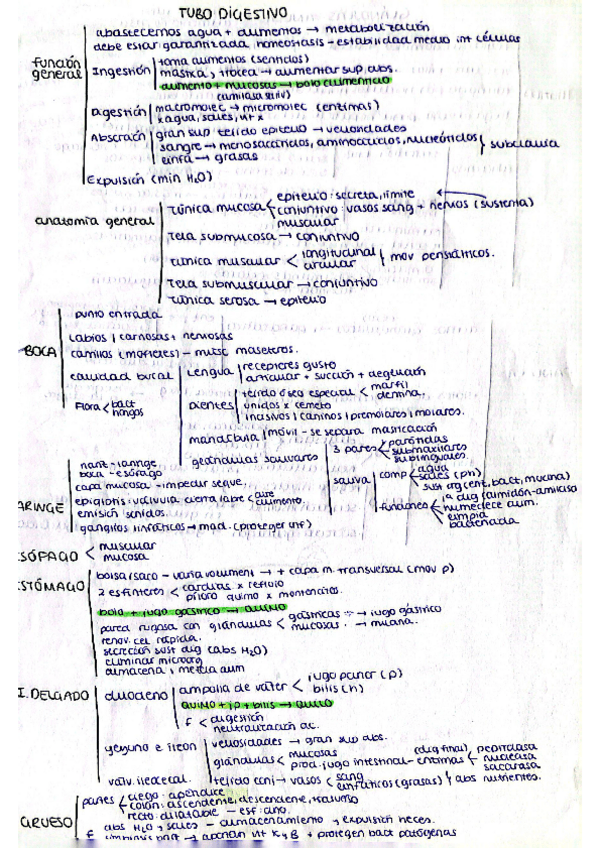 TUBO DIGESTIVO
función general
abastecernos agua + alimentos → metabolización
debe estar garantizada homeostasis - estabilidad medio int células
Ingestión
toma alimentos (sentidos)
mastica, trocea → aumentar sup abs.
alimento + mucosas → bolo alimenticio
Digestión
macromolec → micromolec (enzimas)
x agua, sales, vit x
Absorción
gran sup tejido epitelio → vellosidades
sangre → monosacáridos, aminoácidos, nucleótidos
subclavia
linfa → grasas
Expulsión (min H₂O)
anatomía general
túnica mucosa
epitelio: secreta, límite
conjuntivo: vasos sang + nervios (sustenta)
muscular
tela submucosa → conjuntivo
túnica muscular < longitudinal circular } mov peristálticos.
tela submuscular → conjuntivo
túnica serosa → epitelio
BOCA
punto entrada
labios | carnosas + nerviosas
carrillos (mofletes) - musc maseteros.
cavidad bucal
Lengua
receptores gusto
articular + succión + deglución
Flora < bact hongos
Dientes
tejido óseo especial < marfil dentina.
unidos x cemento
incisivos | caninos | premolares | molares.
mandíbula | móvil - se separa masticación
glándulas salivares
3 pares
parótidas
submaxilares
sublinguales
saliva
comp
agua
sales (pH)
sust org (ent, bact, mucina)
funciones
1ª dig (almidón-amilasa
humedece alim.
limpia
bactericida
FARINGE
nariz - laringe
boca - esófago
capa mucosa - impedir seque.
epiglotis: válvula cierra/abre < aire alimento.
emisión sonidos.
ganglios linfáticos → mad. (proteger inf)
ESÓFAGO < muscular mucosa
ESTÓMAGO
bolsa/saco - varía volumen → + capa m. transversal (mov p)
2 esfínteres < cardias x reflujo píloro quimo x
bolo + jugo gástrico → quimo
pared rugosa con glándulas < gástricas → jugo gástrico mucosas. → mucina.
renov. cel rápida.
secreción sust dig (abs H₂O)
eliminar microorg
almacena, mezcla alim
I. DELGADO
duodeno
ampolla de váter < jugo páncr (p) bilis (h)
quimo + jp + bilis → quilo
f < digestión neutralización ac.
yeyuno e íleon
vellosidades → gran sup abs.
glándulas < mucosas prod. jugo intestinal - enzimas
(dig final)
peptidasa
nucleasa
sacarasa
tejido conj → vasos < sang linfáticos (grasas) } abs nutrientes.
valv. ileocecal.
GRUESO
partes
ciego: apéndice
colon: ascendente, descendente, trasverso
recto: dilatable - esf: ano.
f
abs H₂O, sales - almacenamiento y expulsión heces.
simbiosis bact → aportan vit K y B + protegen bact patógenas